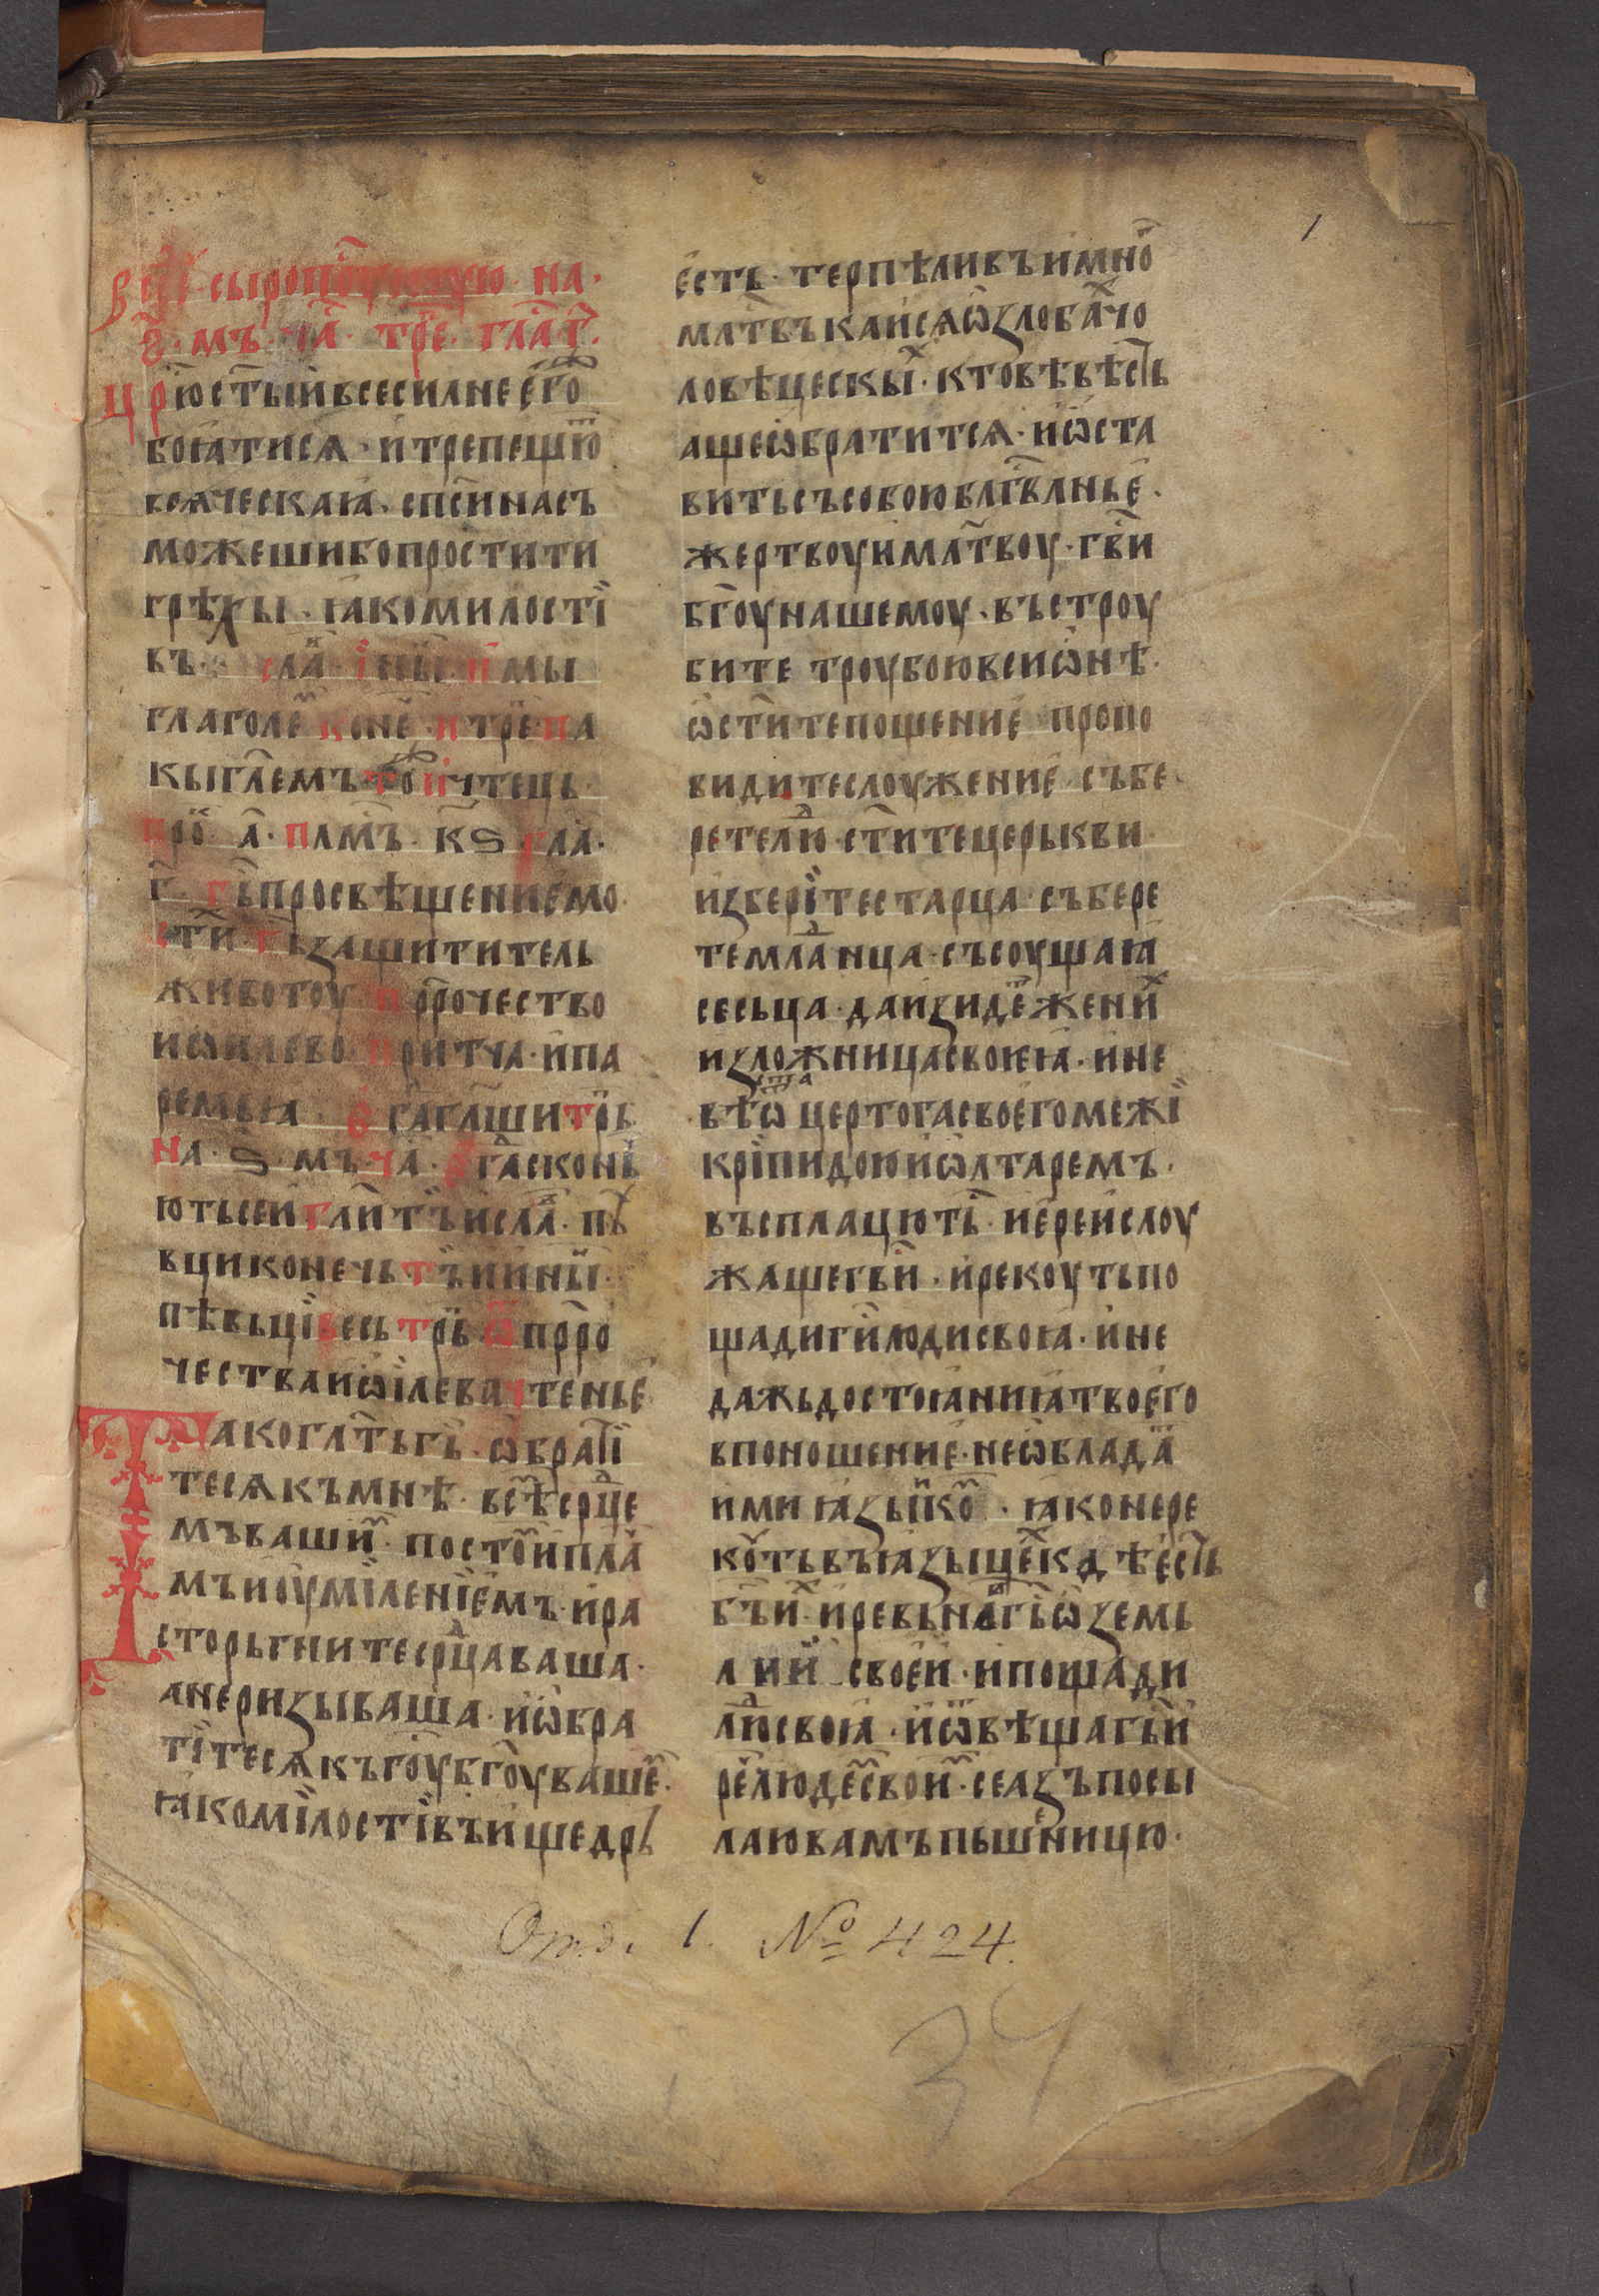 1
сыропоустноую на
ѕ҃ мъ ча҃ трⷪ҇е гла҃ г҃
цр҃ю ст҃ыи всесилне е҆гоⷤ
боꙗтисѧ · и҆трепещю҃
всѧческаꙗ · сп҃си насъ
можешибопростити
грѣхы · ꙗкомилостї
въ · сла҃ і҆ны҃ · п мы
глаголе҃ коне҃ · и тре҃ па
кыгл҃емъ · тоⷤ и҆ чтець
про҃ а҃ · пл҃мъ · к҃ѕ · гла҃ ·
г҃ · гь҃просвѣщениемо
и · гь҃защититель
животоу · пр҃рочество
иѡилево · притча · и҆па
ремьꙗ
на · ѕ҃ · мъ · ча҃ · ега҃сконь
ютьсеи҆гл҃и тъ҃и сла҃ · пѣ
вциконечь тъ҃ии҆ны҃
пѣвьцівесь трь҃ ѿпр҃ро
чества иѡ҆їлева чтенье҆
Тако гл҃ть гь҃ · ѡбрати
тесѧкъмнѣ · все҃мь срⷣце
мъваши҃ · посто҃ипла
мъиоу҆мїленїемъ · и҆ра
сторьгнитесрⷣцаваша ·
анеризываша · и҆ѡбра
тїтесѧкъго҃убго҃уваше҃ ·
ꙗкомїлостївъи҆щедрь
е҆сть · терпѣливъи҆мно҃
мл҃твъкаи҆сѧѡ҆злобаⷯчо
ловѣцескыⷯ · ктовѣвѣсть
ащеѡ҆братитсѧ · и҆ѡ҆ста
витьсъсобоюблг҃влнье҆ ·
жертвоуи҆мл҃твоу · гв҃и
бг҃оунашемоу · въстроу
бите троубоювсиѡнѣ ·
ѡ҆ст҃итепощение҆ пропо
видитеслоужение҆ · събе
ретелюⷣ · ст҃итецерькви ·
и҆зберїтестарца · събере
темлаⷣнца · съсоущаꙗ
сесьца · даи҆зиде҃жениⷯ
изложницасвоꙗ · и҆не
вѣстаѿцертогасвое҆гомежї
крїпидоюи҆ѡ҆лтаремъ ·
въсплацютї · и҆е҆реи҆слоу
жащегв҃и · и҆рекоутьпо
щадиги҃людисвоꙗ · и҆не
дажьдостоꙗниꙗтвое҆го
впоношение҆ · неѡ҆влада҃
имиꙗзыко҃ · ꙗконере
коу҃тьвъꙗзыцеⷯкдѣе҆сть
бъ҃иⷯ · и҆ревьнагь҃ѡ҆земь
лии҆ свое҆и · и҆пощади
люⷣсвоꙗ · и҆ѿвѣщагь҃и
ре҃людемъсвои҃ · сеазъпосы
лаювамъпьшеницю ·
Отд. 1. № 424.
34